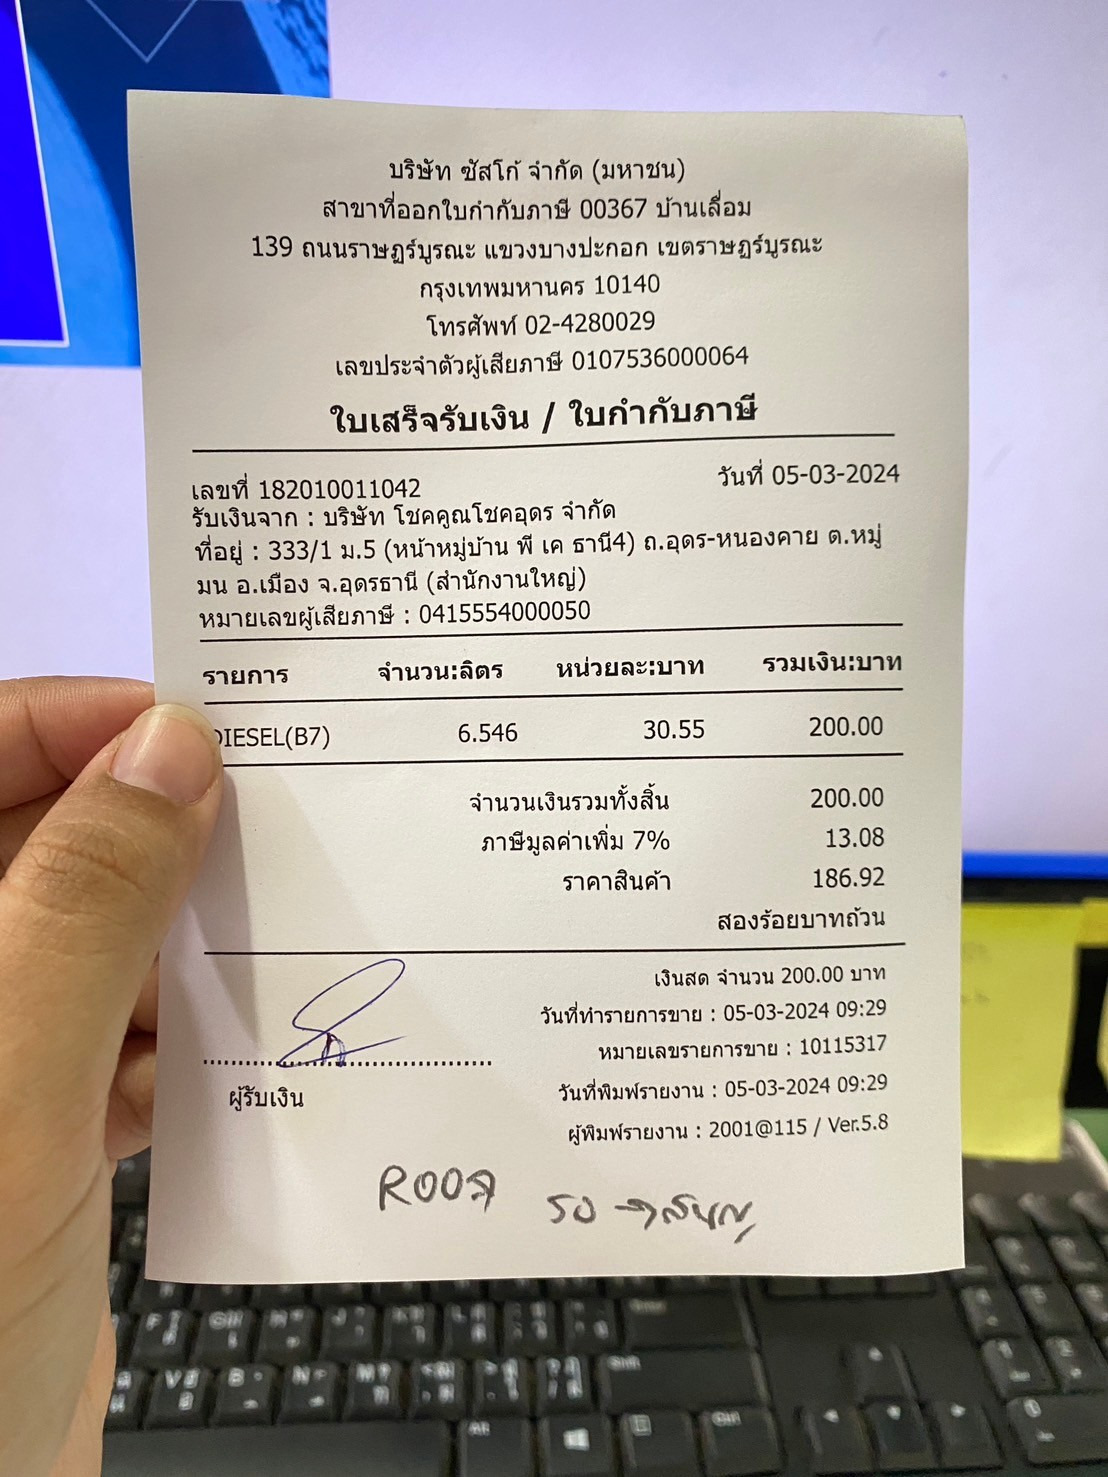 บริษัท ซัสโก้ จำกัด (มหาชน)
สาขาที่ออกใบกำกับภาษี 00367 บ้านเลื่อม
139 ถนนราษฏร์บูรณะ แขวงบางปะกอก เขตราษฏร์บูรณะ
กรุงเทพมหานคร 10140
โทรศัพท์ 02-4280029
เลขประจำตัวผู้เสียภาษี 0107536000064
ใบเสร็จรับเงิน / ใบกำกับภาษี
เลขที่ 182010011042 วันที่ 05-03-2024
รับเงินจาก : บริษัท โชคคูณโชคอุดร จำกัด
ที่อยู่ : 333/1 ม.5 (หน้าหมู่บ้าน พี เค ธานี4) ถ.อุดร-หนองคาย ต.หมู่
มน อ.เมือง จ.อุดรธานี (สำนักงานใหญ่)
หมายเลขผู้เสียภาษี : 0415554000050
รายการ จำนวน:ลิตร หน่วยละ:บาท รวมเงิน:บาท
DIESEL(B7) 6.546 30.55 200.00
จำนวนเงินรวมทั้งสิ้น 200.00
ภาษีมูลค่าเพิ่ม 7% 13.08
ราคาสินค้า 186.92
สองร้อยบาทถ้วน
เงินสด จำนวน 200.00 บาท
วันที่ทำรายการขาย : 05-03-2024 09:29
หมายเลขรายการขาย : 10115317
วันที่พิมพ์รายงาน : 05-03-2024 09:29
ผู้พิมพ์รายงาน : 2001@115 / Ver.5.8
ผู้รับเงิน